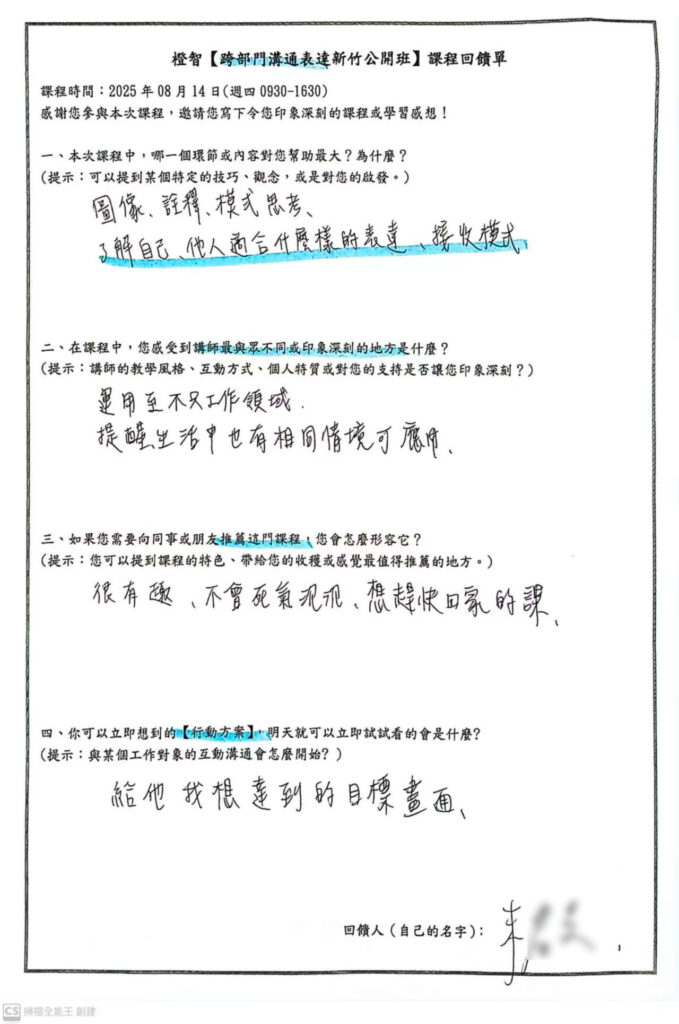 橙智【跨部門溝通表達新竹公開班】課程回饋單
課程時間：2025 年 08 月 14 日(週四 0930-1630)
感謝您參與本次課程，邀請您寫下令您印象深刻的課程或學習感想！
一、本次課程中，哪一個環節或內容對您幫助最大？為什麼？
(提示：可以提到某個特定的技巧、觀念，或是對您的啟發。)
圖像、詮釋、模式思考、
了解自己、他人適合什麼樣的表達、接收模式
二、在課程中，您感受到講師最與眾不同或印象深刻的地方是什麼？
(提示：講師的教學風格、互動方式、個人特質或對您的支持是否讓您印象深刻？)
運用至不只工作領域.
提醒生活中也有相同情境可應用、
三、如果您需要向同事或朋友推薦這門課程，您會怎麼形容它？
(提示：您可以提到課程的特色、帶給您的收穫或感覺最值得推薦的地方。)
很有趣、不會死氣沉沉、想趕快回家的課、
四、你可以立即想到的【行動方案】，明天就可以立即試試看的會是什麼?
(提示：與某個工作對象的互動溝通會怎麼開始? )
給他我想達到的目標畫面、
回饋人（自己的名字）：
CS 掃描全能王 創建